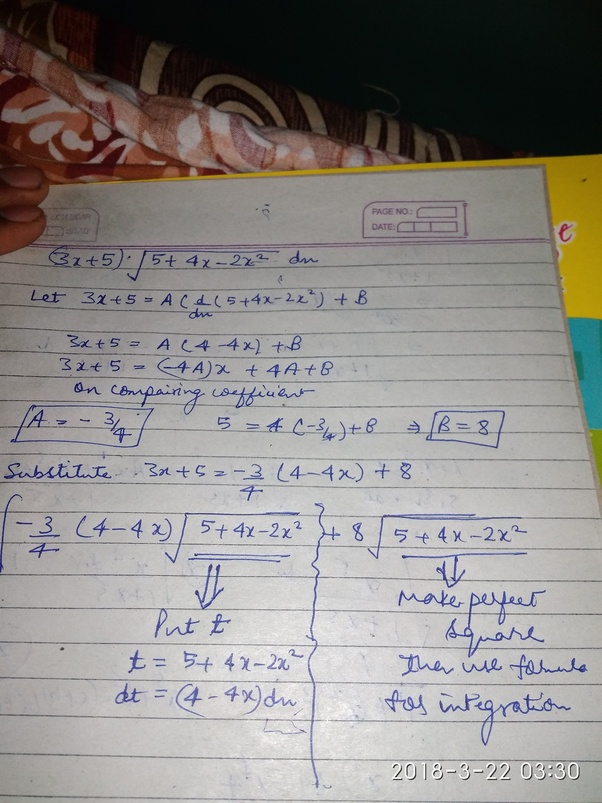 PAGE NO.:
DATE:
(3x+5)·√5+4x-2x² dn
Let 3x+5 = A(d/dn(5+4x-2x²) + B
3x+5 = A(4-4x) + B
3x+5 = (-4A)x + 4A+B
on compairing coefficient
A = -3/4 5 = 4(-3/4)+B ⇒ B = 8
Substitute 3x+5 = -3/4 (4-4x) + 8
∫ -3/4 (4-4x)√5+4x-2x² + 8√5+4x-2x²
⇓ ⇓
Put t
t = 5+4x-2x²
dt = (4-4x)dn
Make perfect
square
then use formula
for integration
2018-3-22 03:30